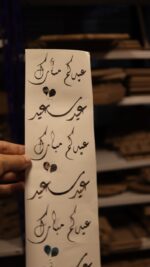 عيدكم مبارك
عيد سعيد
عيدكم مبارك
عيد سعيد
عيدكم مبارك